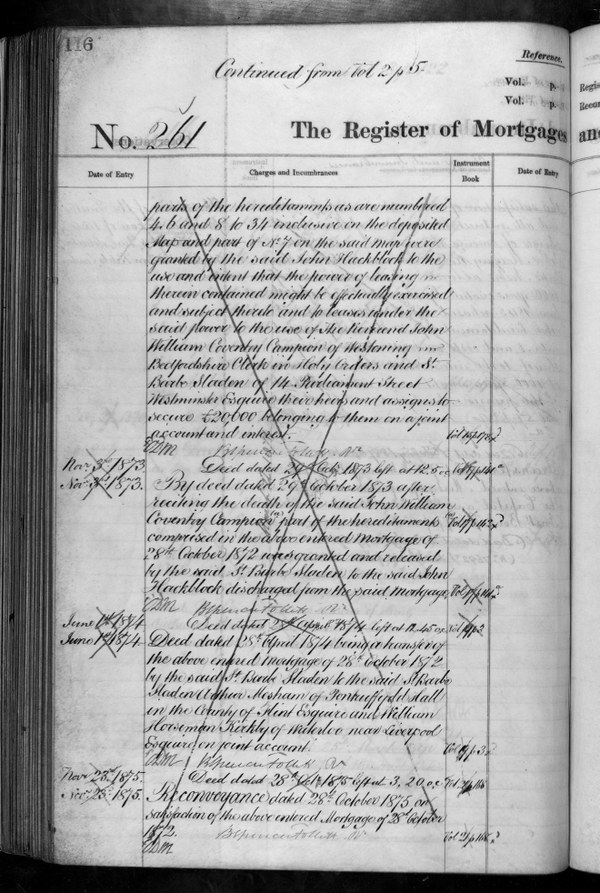 116
Reference.
Continued from Vol 2 p 5.
Vol. p.
Vol. p.
No. 261
The Register of Mortgages
and
Regis
Recor
Date of Entry
Charges and Incumbrances
Instrument Book
Date of Entry
parts of the hereditaments as are numbered
4. 6 and 8 to 34 inclusive on the deposited
Map and part of No. 7 on the said map were
granted by the said John Hackblock to the
use and intent that the power of leasing
therein contained might be effectually exercised
and subject thereto and to leases under the
said power to the use of The Reverend John
William Coventry Campion of Westoning
Bedfordshire Clerk in Holy Orders and St.
Barbe Sladen of 14 Parliament Street
Westminster Esquire their heirs and assigns to
secure £20,000 belonging to them on a joint
account and interest.
Nov 3rd 1873
Deed dated 29th Octr 1873 left at 12.5 o.c
Nov 3rd 1873.
By deed dated 29th October 1873 after
reciting the death of the said John William
Coventry Campion part of the hereditaments
comprised in the above entered Mortgage of
28th October 1872 was granted and released
by the said St Barbe Sladen to the said John
Hackblock discharged from the said Mortgage
June 1st 1874
Deed dated 28th April 1874 left at 12.45 o.c
June 1st 1874
Deed dated 28th April 1874 being a transfer of
the above entered mortgage of 28th October 1872
by the said St Barbe Sladen to the said St Barbe
Sladen Arthur Mesham of Hall
in the County of Flint Esquire and William
Horseman Kirkby of Waterloo near Liverpool
Esquire on joint account.
Novr 23rd 1875.
Deed dated 28th Octr 1875 left at 3.20 o.c
Novr 23rd 1875.
Reconveyance dated 28th October 1875 on
satisfaction of the above entered Mortgage of 28th October
1872.